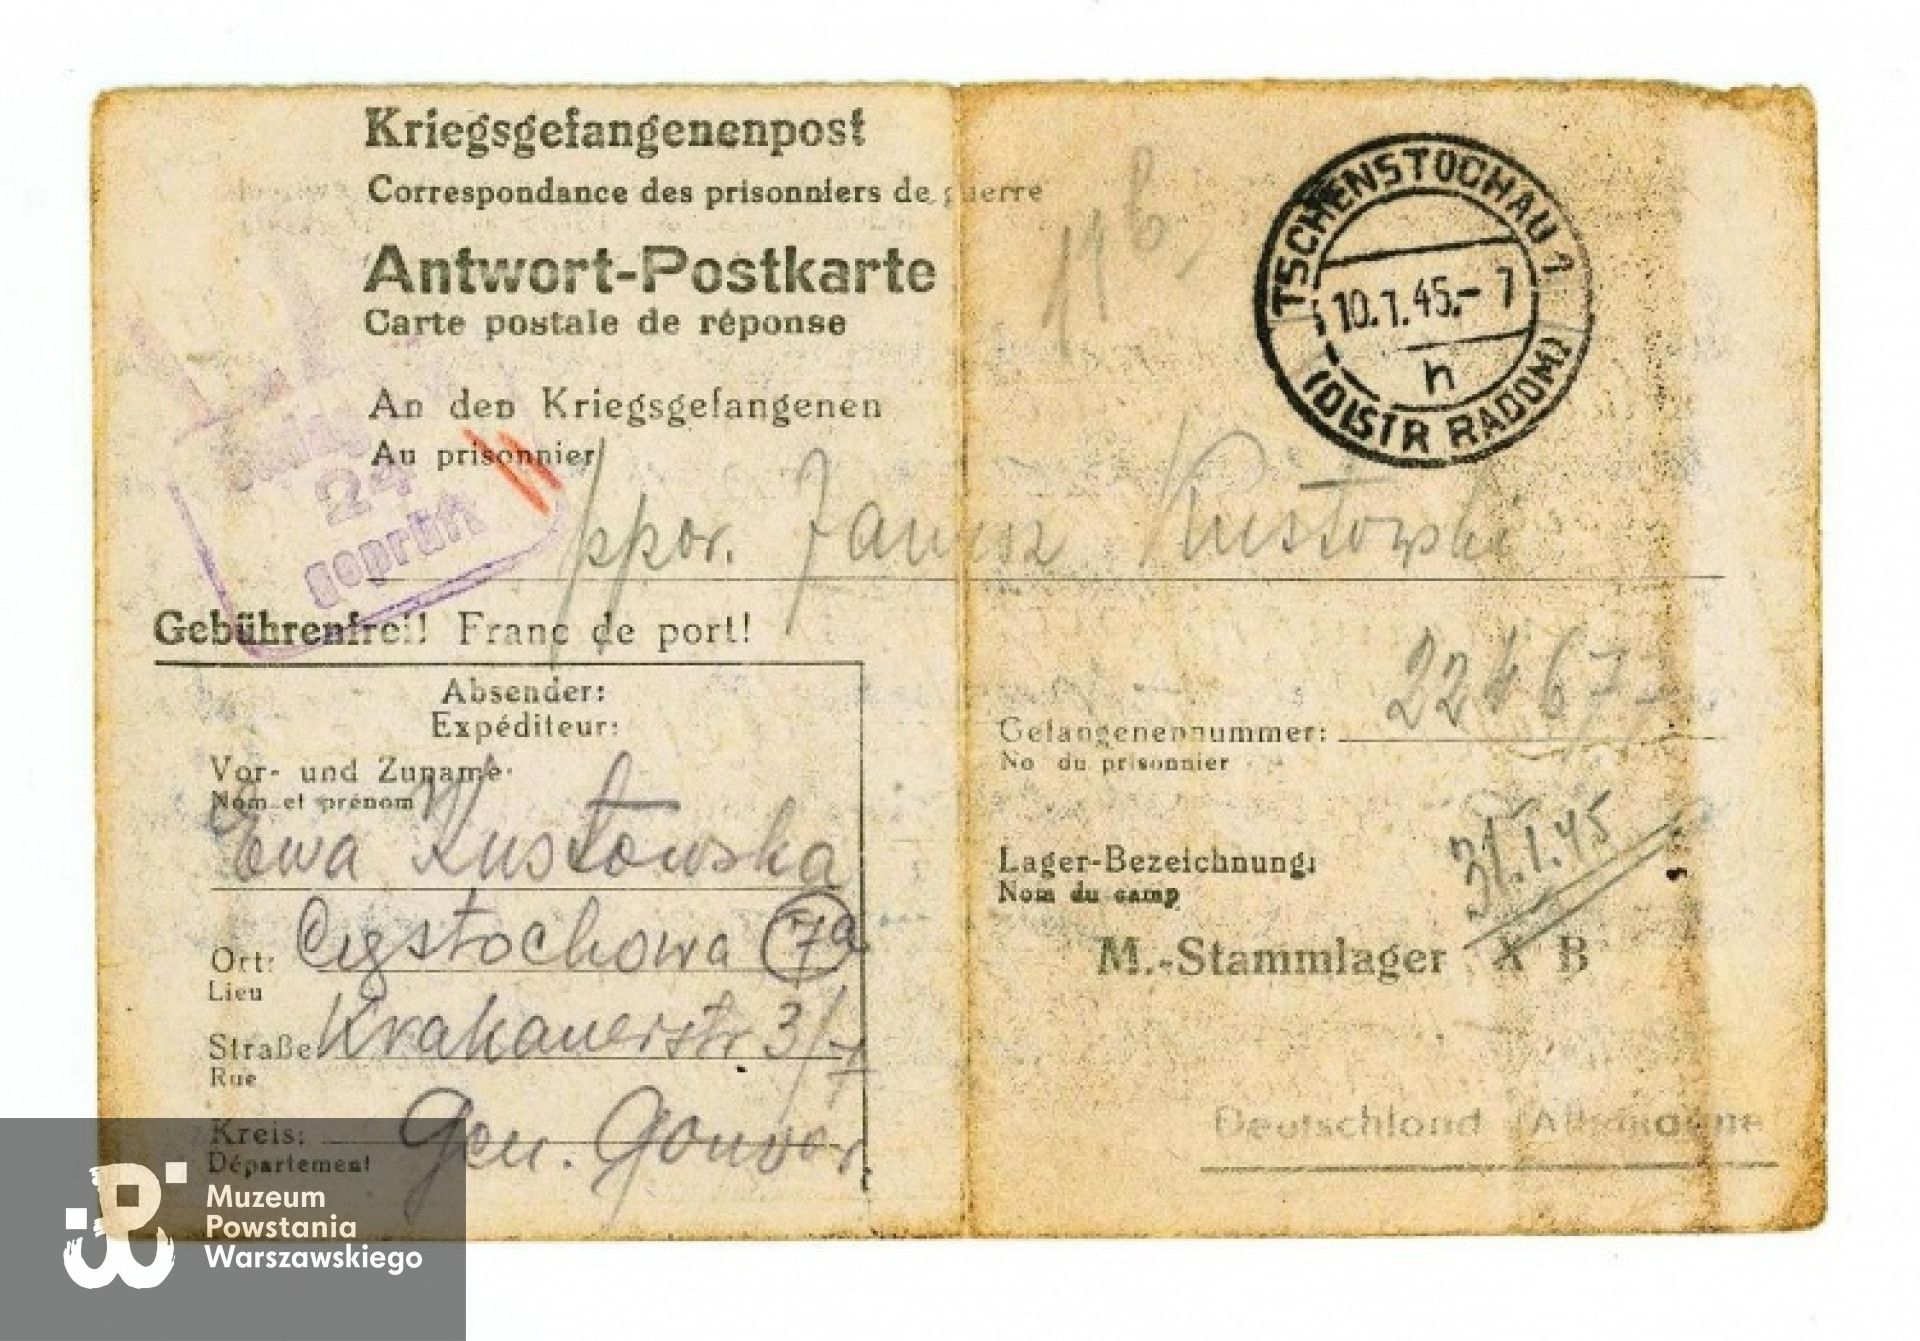 Kriegsgefangenenpost
Correspondance des prisonniers de guerre
Antwort-Postkarte
Carte postale de réponse
An den Kriegsgefangenen
Au prisonnier
ppor. Janusz Kustowski
11b
TSCHENSTOCHAU 1
10.1.45.- 7
h
(DISTR RADOM)
24
geprüft
Gebührenfrei! Franc de port!
Absender:
Expéditeur:
Vor- und Zuname:
Nom et prénom
Ewa Kustowska
Ort: Częstochowa 7a
Lieu
Straße Krakauerstr 3/7
Rue
Kreis: Gen. Gouver.
Département
Gefangenennummer: 224677
No du prisonnier
31.1.45
Lager-Bezeichnung:
Nom du camp
M.-Stammlager X B
Deutschland (Allemagne
Muzeum
Powstania
Warszawskiego